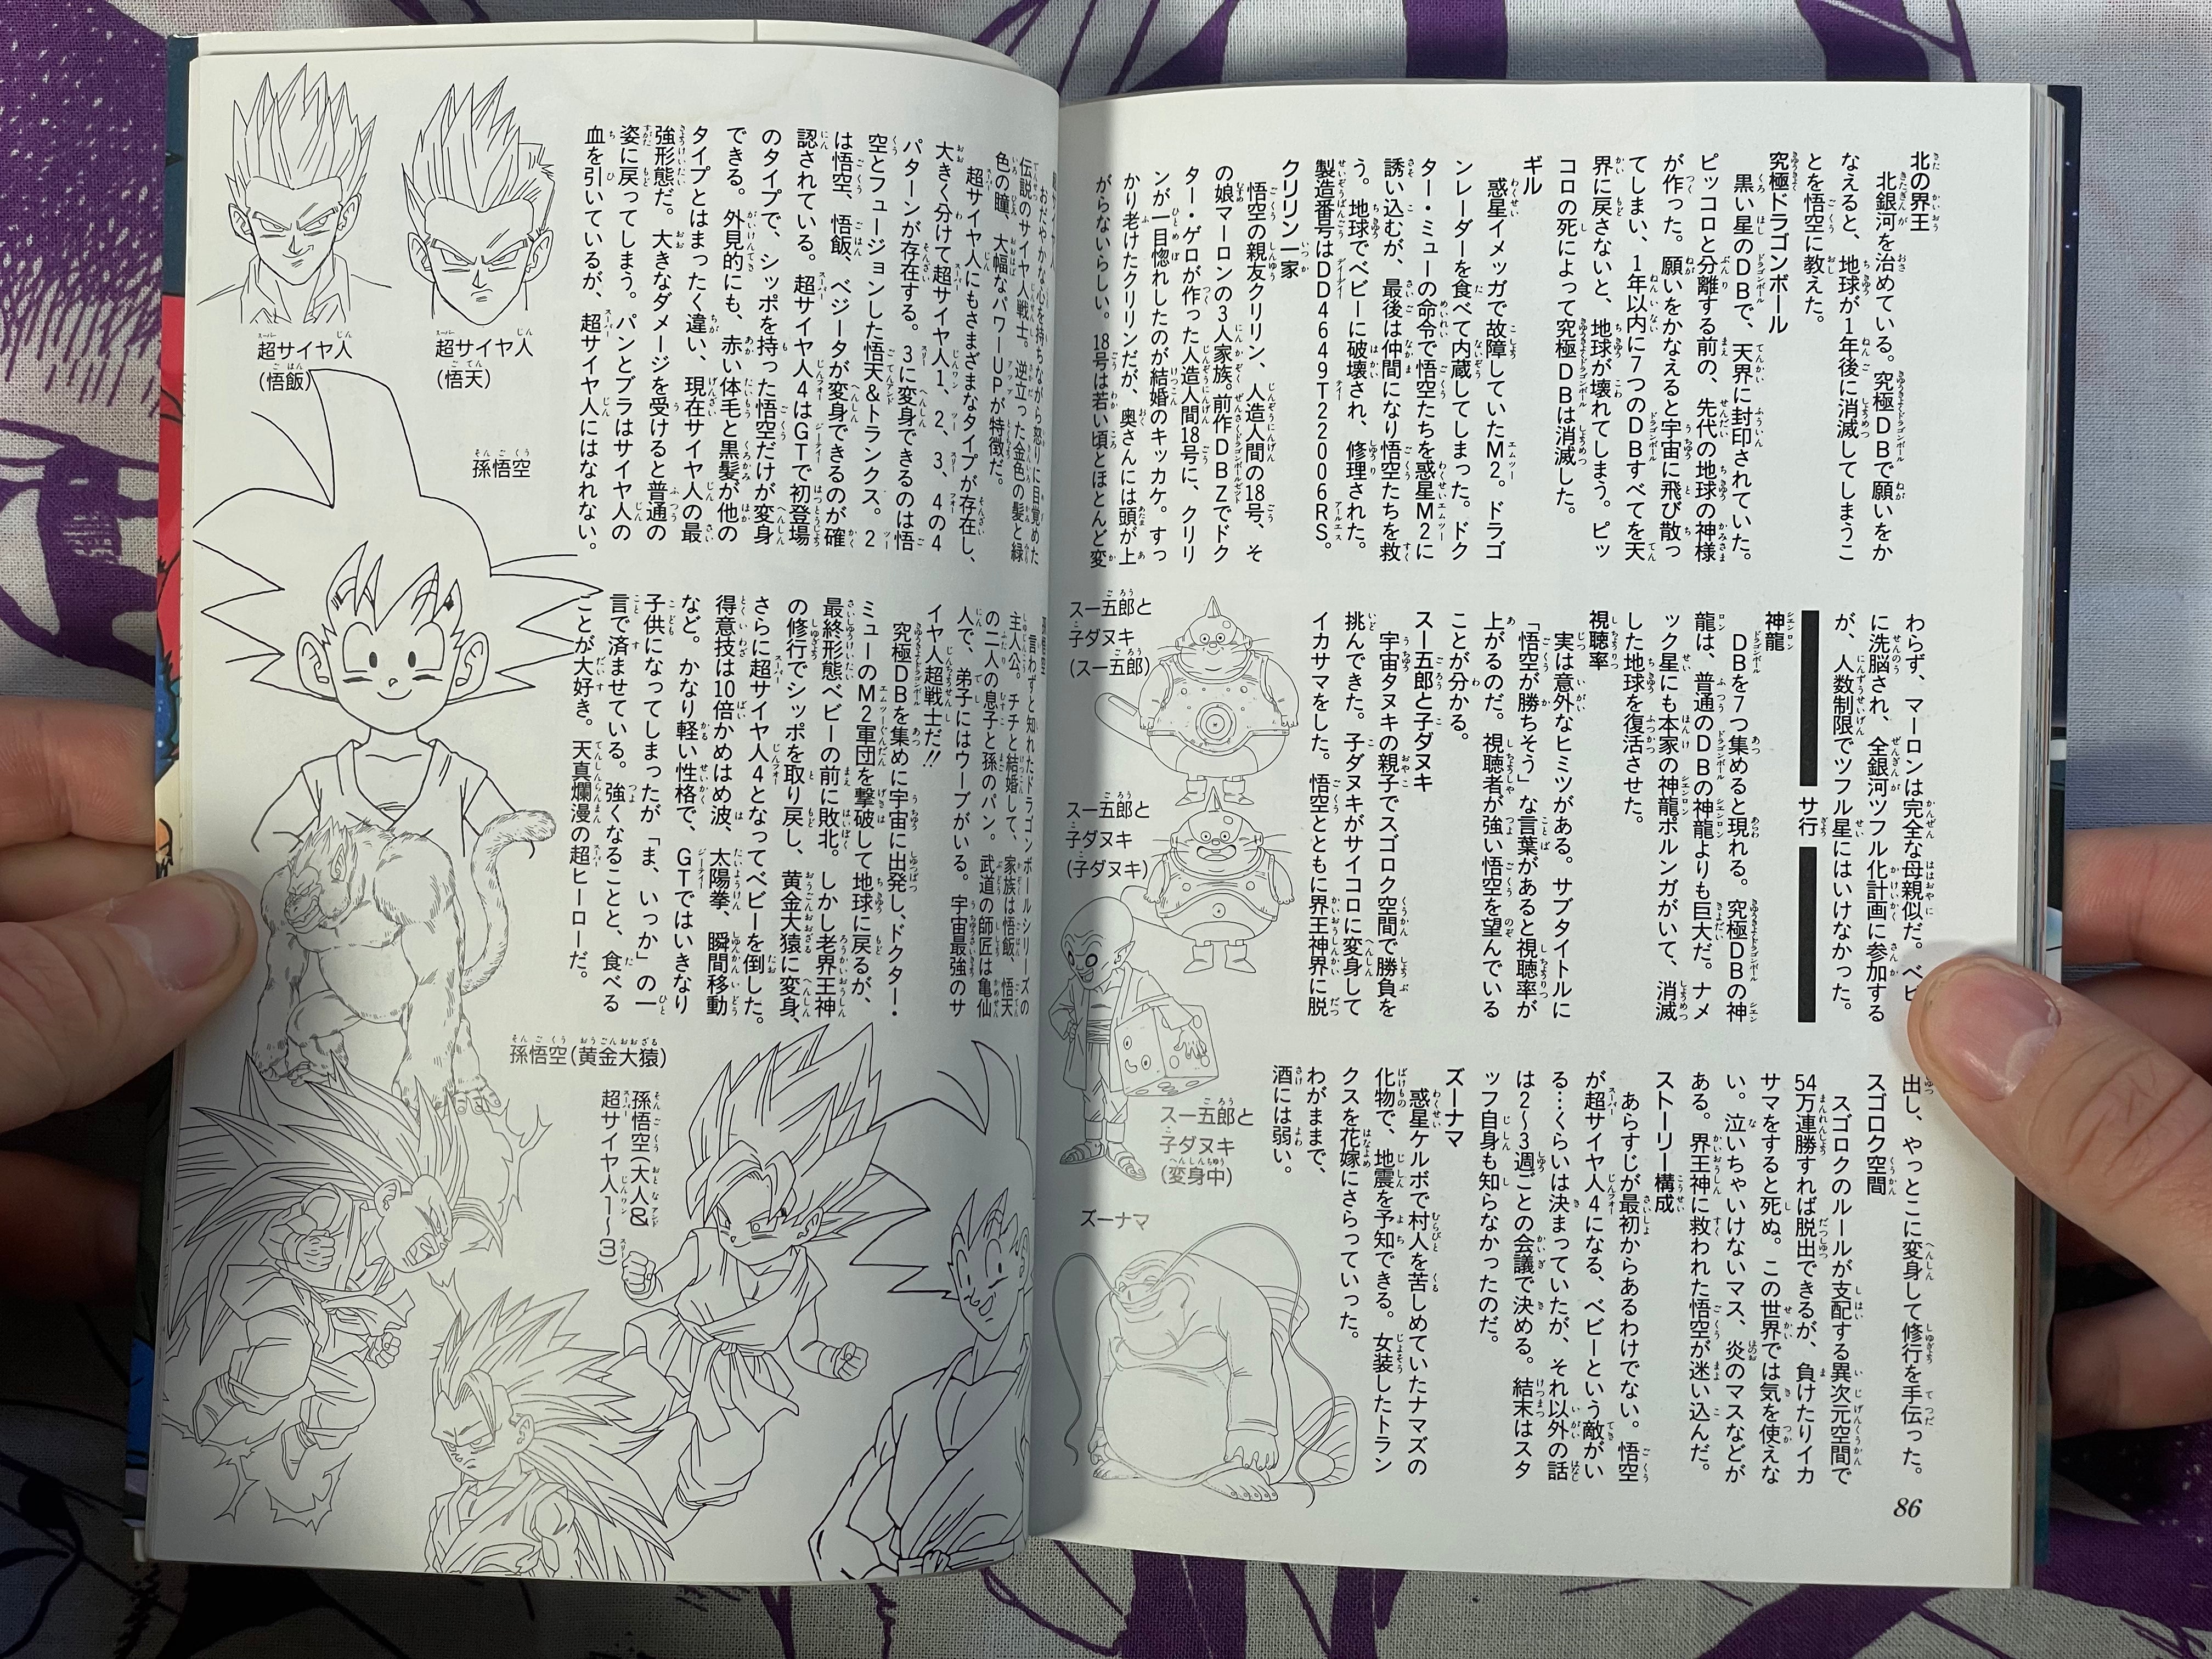 北の界王
北銀河を治めている。究極DBで願いをか
なえると、地球が1年後に消滅してしまうこ
とを悟空に教えた。
究極ドラゴンボール
黒い星のDBで、天界に封印されていた。
ピッコロと分離する前の、先代の地球の神様
が作った。願いをかなえると宇宙に飛び散っ
てしまい、1年以内に7つのDBすべてを天
界に戻さないと、地球が壊れてしまう。ピッ
コロの死によって究極DBは消滅した。
ギル
惑星イメッガで故障していたM2。ドラゴ
ンレーダーを食べて内蔵してしまった。ドク
ター・ミューの命令で悟空たちを惑星M2に
誘い込むが、最後は仲間になり悟空たちを救
う。地球でベビーに破壊され、修理された。
製造番号はDD4649T22006RS。
クリリン一家
悟空の親友クリリン、人造人間の18号、そ
の娘マーロンの3人家族。前作DBZでドク
ター・ゲロが作った人造人間18号に、クリリ
ンが一目惚れしたのが結婚のキッカケ。すっ
かり老けたクリリンだが、奥さんには頭が上
がらないらしい。18号は若い頃とほとんど変
わらず、マーロンは完全な母親似だ。ベビ
に洗脳され、全銀河ツフル化計画に参加する
が、人数制限でツフル星にはいけなかった。
サ行
神龍
DBを7つ集めると現れる。究極DBの神
龍は、普通のDBの神龍よりも巨大だ。ナメ
ック星にも本家の神龍ポルンガがいて、消滅
した地球を復活させた。
視聴率
実は意外なヒミツがある。サブタイトルに
「悟空が勝ちそう」な言葉があると視聴率が
上がるのだ。視聴者が強い悟空を望んでいる
ことが分かる。
スー五郎と子ダヌキ
宇宙タヌキの親子でスゴロク空間で勝負を
挑んできた。子ダヌキがサイコロに変身して
イカサマをした。悟空とともに界王神界に脱
スー五郎と
子ダヌキ
(スー五郎)
スー五郎と
子ダヌキ
(子ダヌキ)
出し、やっとこに変身して修行を手伝った。
スゴロク空間
スゴロクのルールが支配する異次元空間で
54万連勝すれば脱出できるが、負けたりイカ
サマをすると死ぬ。この世界では気を使えな
い。泣いちゃいけないマス、炎のマスなどが
ある。界王神に救われた悟空が迷い込んだ。
ストーリー構成
あらすじが最初からあるわけでない。悟空
が超サイヤ人4になる、ベビーという敵がい
る…くらいは決まっていたが、それ以外の話
は2〜3週ごとの会議で決める。結末はスタ
ッフ自身も知らなかったのだ。
ズーナマ
惑星ケルボで村人を苦しめていたナマズの
化物で、地震を予知できる。女装したトラン
クスを花嫁にさらっていった。
わがままで、
酒には弱い。
スー五郎と
子ダヌキ
(変身中)
ズーナマ
86
おだやかな心を持ちながら怒りに目覚めた
伝説のサイヤ人戦士。逆立った金色の髪と緑
色の瞳、大幅なパワーUPが特徴だ。
超サイヤ人にもさまざまなタイプが存在し、
大きく分けて超サイヤ人1、2、3、4の4
パターンが存在する。3に変身できるのは悟
空とフュージョンした悟天&トランクス。2
は悟空、悟飯、ベジータが変身できるのが確
認されている。超サイヤ人4はGTで初登場
のタイプで、シッポを持った悟空だけが変身
できる。外見的にも、赤い体毛と黒髪が他の
タイプとはまったく違い、現在サイヤ人の最
強形態だ。大きなダメージを受けると普通の
姿に戻ってしまう。パンとブラはサイヤ人の
血を引いているが、超サイヤ人にはなれない。
超サイヤ人
(悟天)
超サイヤ人
(悟飯)
孫悟空
孫悟空
言わずと知れたドラゴンボールシリーズの
主人公。チチと結婚して、家族は悟飯、悟天
の二人の息子と孫のパン。武道の師匠は亀仙
人で、弟子にはウーブがいる。宇宙最強のサ
イヤ人超戦士だ!!
究極DBを集めに宇宙に出発し、ドクター・
ミューのM2軍団を撃破して地球に戻るが、
最終形態ベビーの前に敗北。しかし老界王神
の修行でシッポを取り戻し、黄金大猿に変身、
さらに超サイヤ人4となってベビーを倒した。
得意技は10倍かめはめ波、太陽拳、瞬間移動
など。かなり軽い性格で、GTではいきなり
子供になってしまったが「ま、いっか」の一
言で済ませている。強くなることと、食べる
ことが大好き。天真爛漫の超ヒーローだ。
孫悟空(黄金大猿)
孫悟空(大人&
超サイヤ人1〜3)